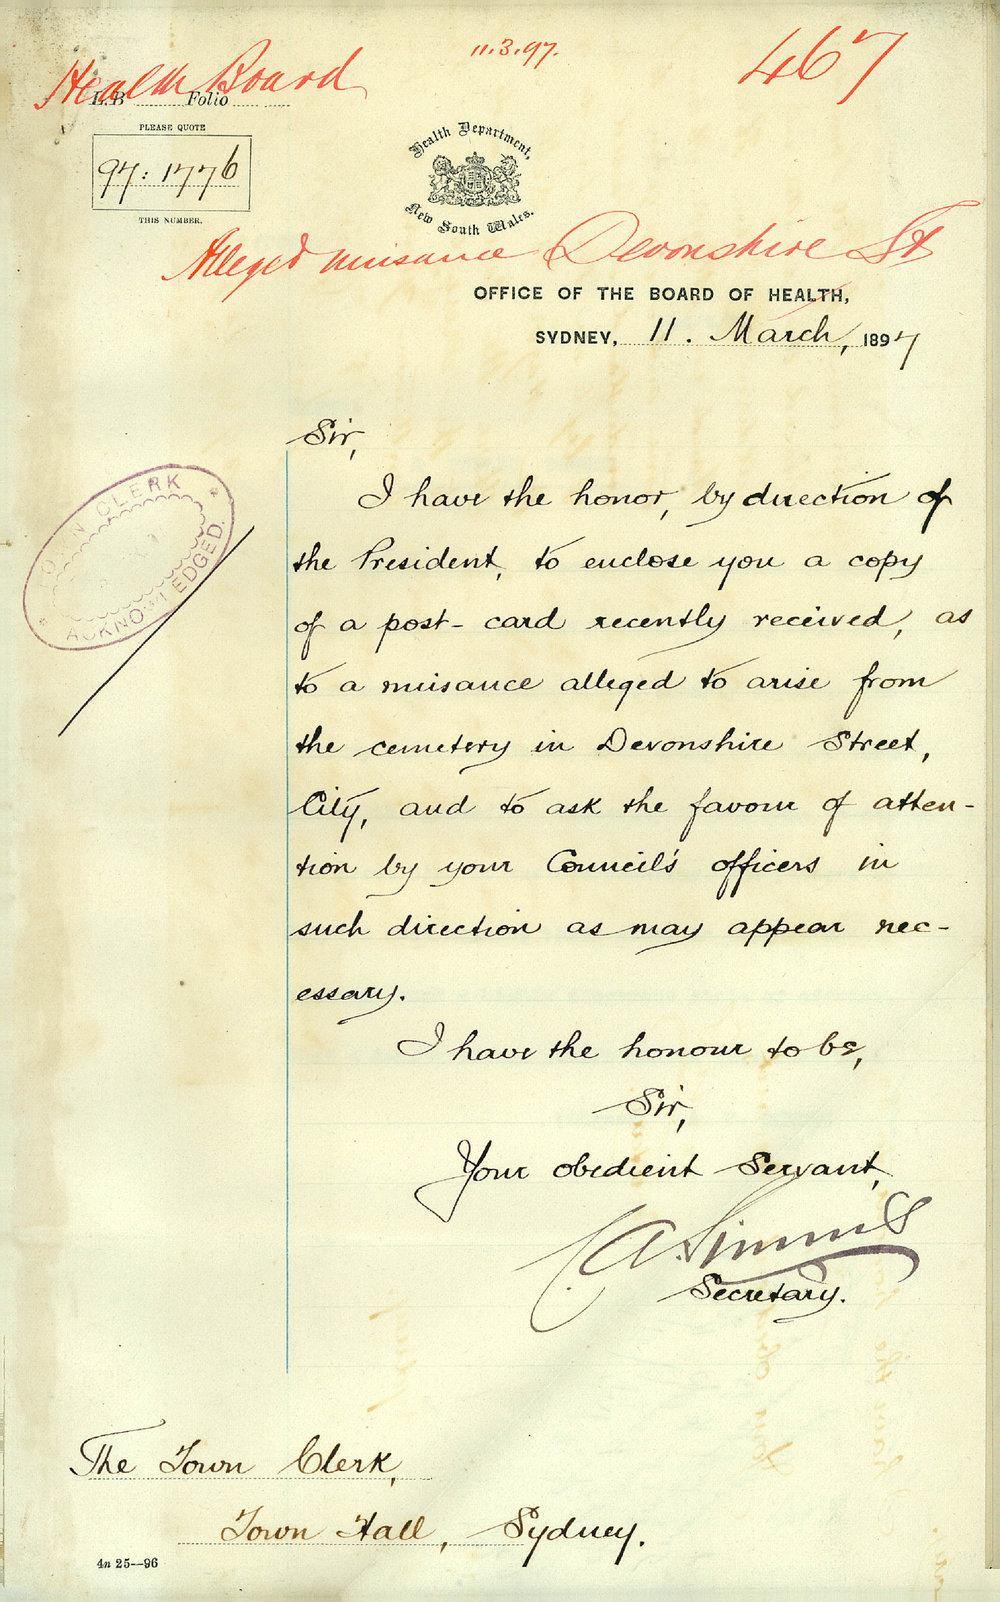 11.3.97.
467
Health Board
L.B Folio
PLEASE QUOTE
97:1776
THIS NUMBER.
Health Department,
New South Wales.
Alleged nuisance Devonshire St
OFFICE OF THE BOARD OF HEALTH,
SYDNEY, 11. March, 1897
Sir,
I have the honor, by direction of
the President, to enclose you a copy
of a post-card recently received, as
to a nuisance alleged to arise from
the cemetery in Devonshire Street,
City, and to ask the favour of atten-
tion by your Council's officers in
such direction as may appear nec-
essary.
TOWN CLERK
ACKNOWLEDGED.
I have the honour to be,
Sir,
Your obedient Servant,
Secretary.
The Town Clerk,
Town Hall, Sydney.
4n 25--96